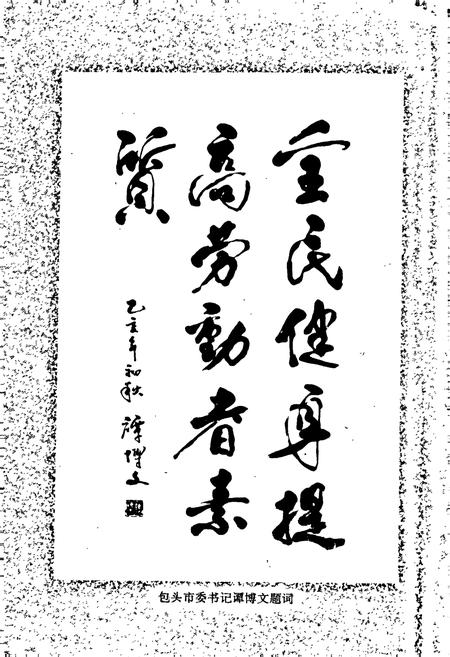 全民健身提
高劳動者素
質
乙亥年初秋 譚博文
包头市委书记谭博文题词